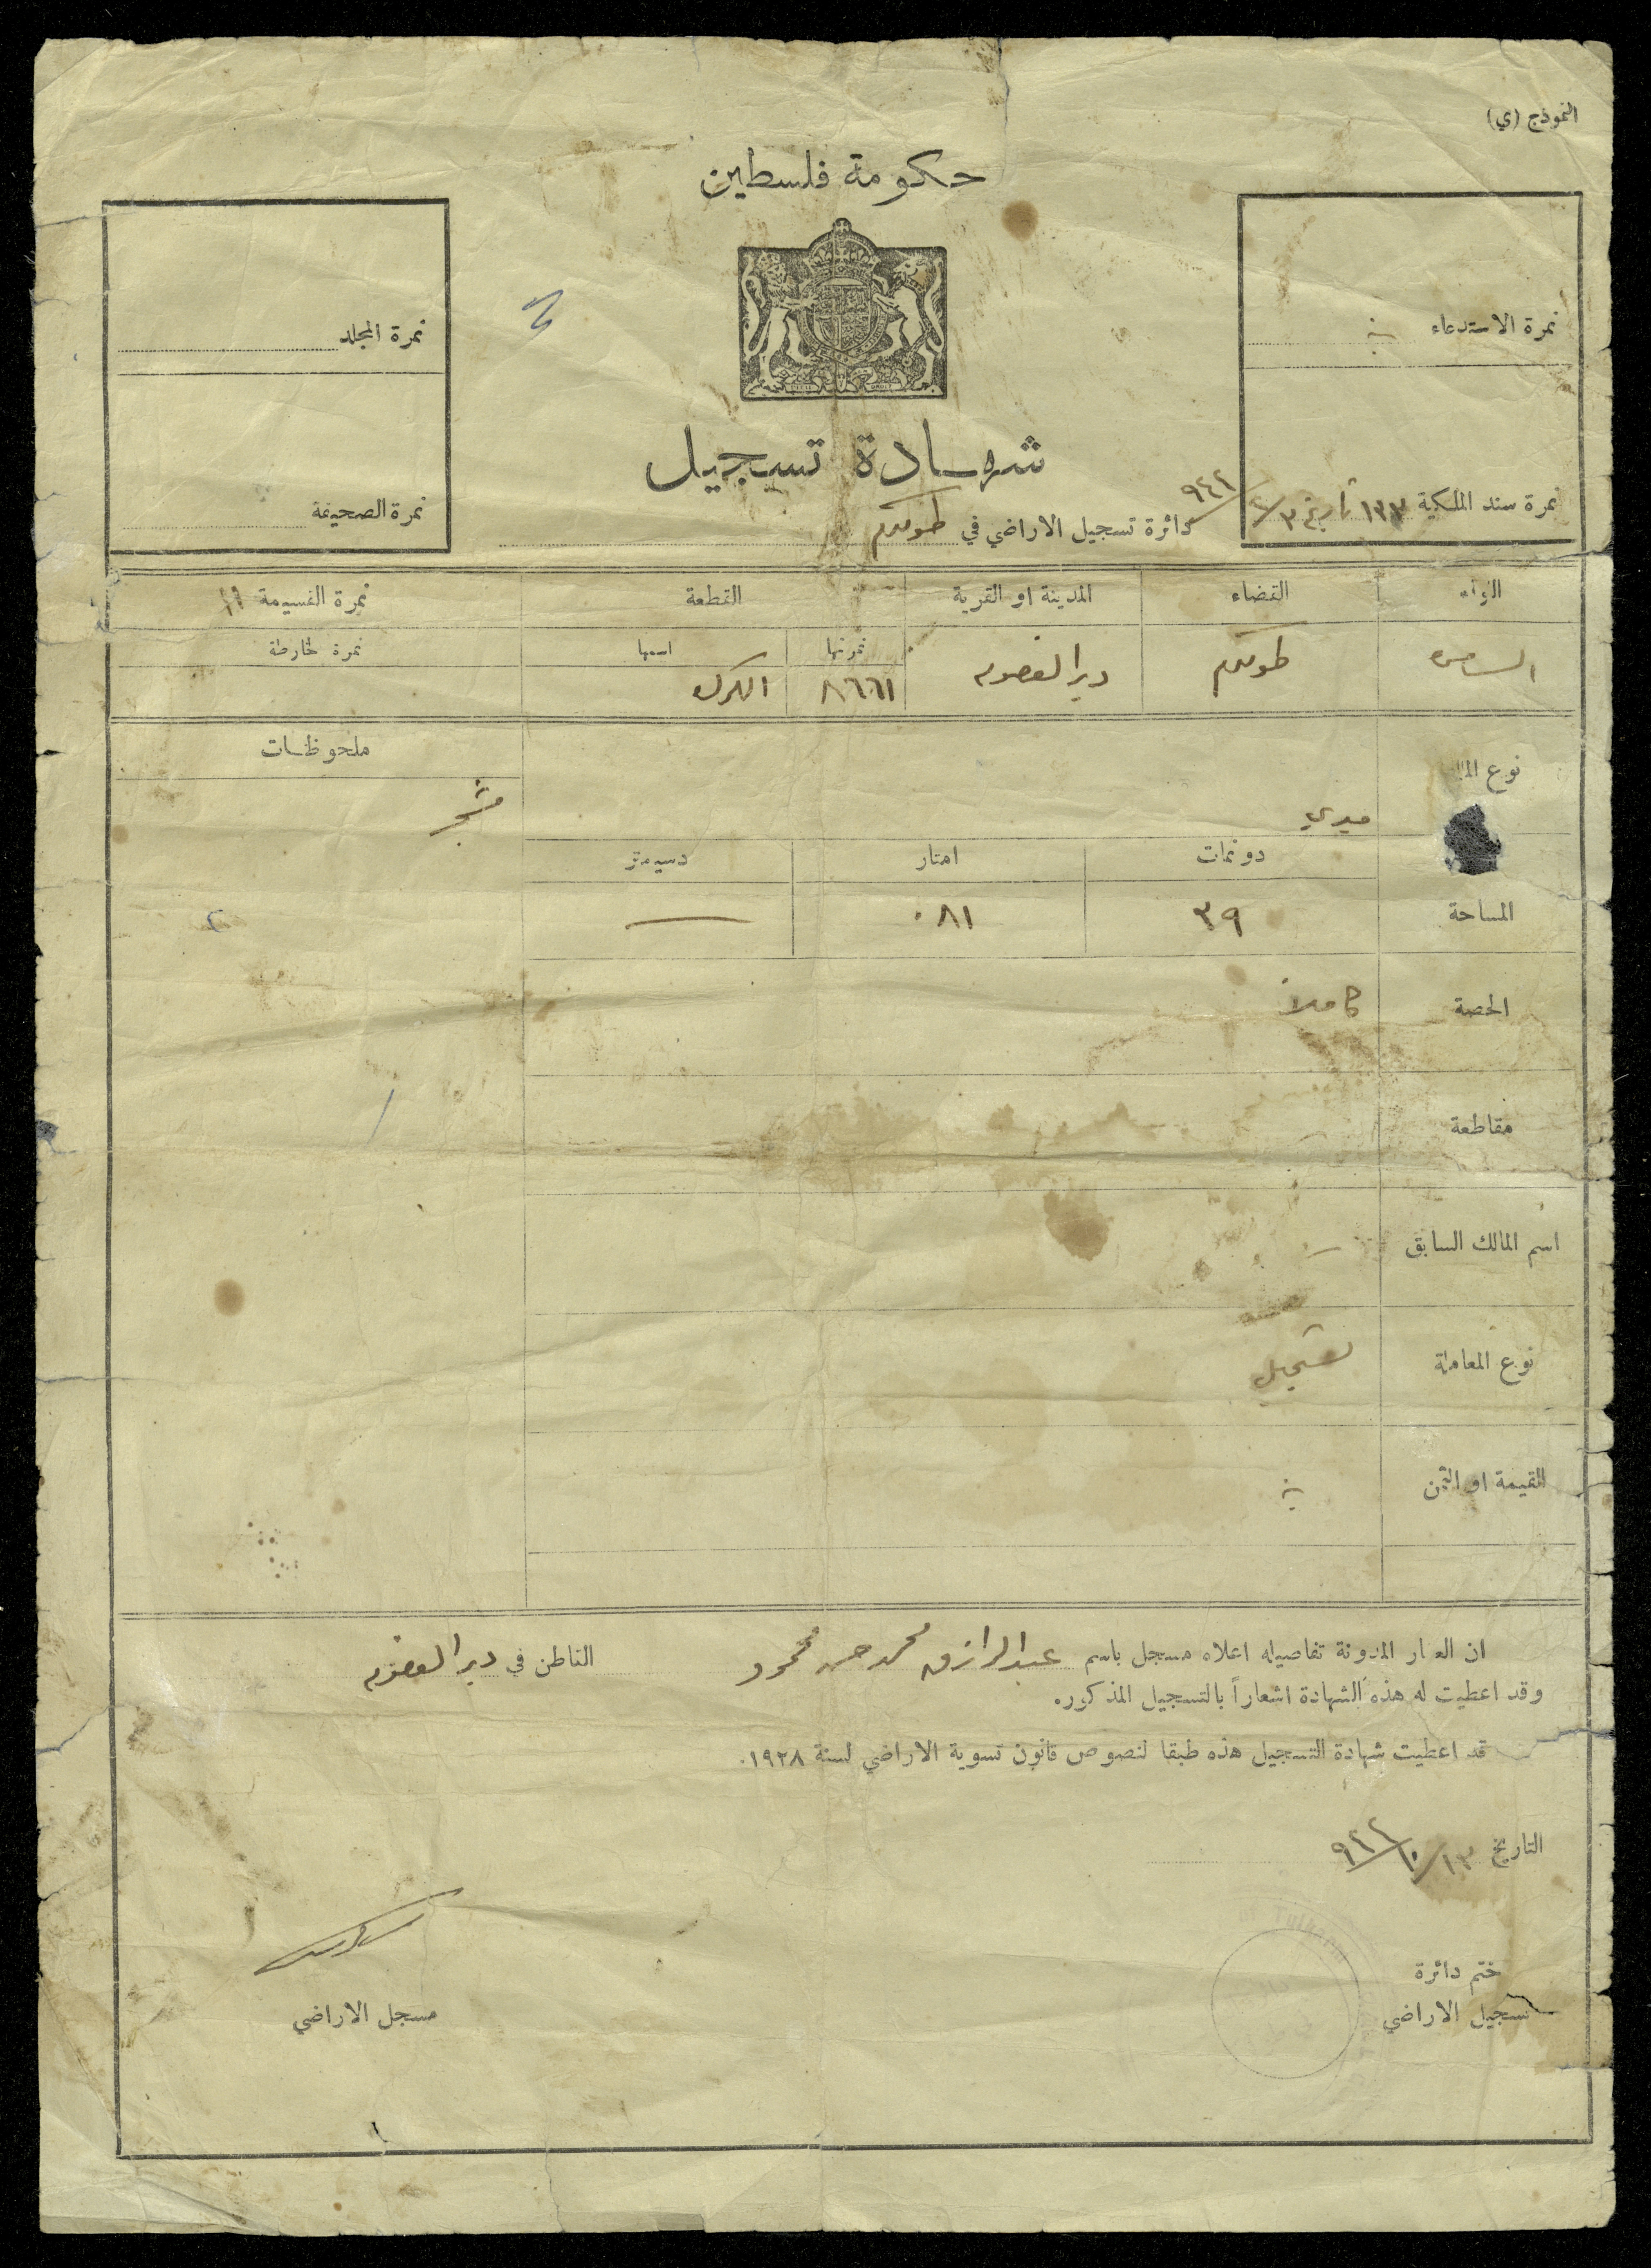 النموذج (ي)
حكومة فلسطين
نمرة الاستدعاء
نمرة المجلد
شهادة تسجيل
نمرة سند الملكية ١٣٣ تاريخ
نمرة الصحيفة
دائرة تسجيل الاراضي في طولكرم
اللواء القضاء المدينة او القرية القطعة نمرة القسيمة ١١
نمرتها اسمها نمرة خارطة
طولكرم دير الغصون ٨٦٦١
ملحوظات
نوع
ميري مشجر
دونمات امتار دسيمتر
المساحة ٣٩ ٠٨١ —
الحصة كاملا
مقاطعة
اسم المالك السابق
نوع المعاملة تسجيل
القيمة او الثمن
ان العقار المدونة تفاصيله اعلاه مسجل باسم عبد الرازق محمد حسن محمود القاطن في دير الغصون
وقد اعطيت له هذه الشهادة اشعاراً بالتسجيل المذكور.
قد اعطيت شهادة التسجيل هذه طبقا لنصوص قانون تسوية الاراضي لسنة ١٩٢٨.
التاريخ
ختم دائرة
تسجيل الاراضي
مسجل الاراضي